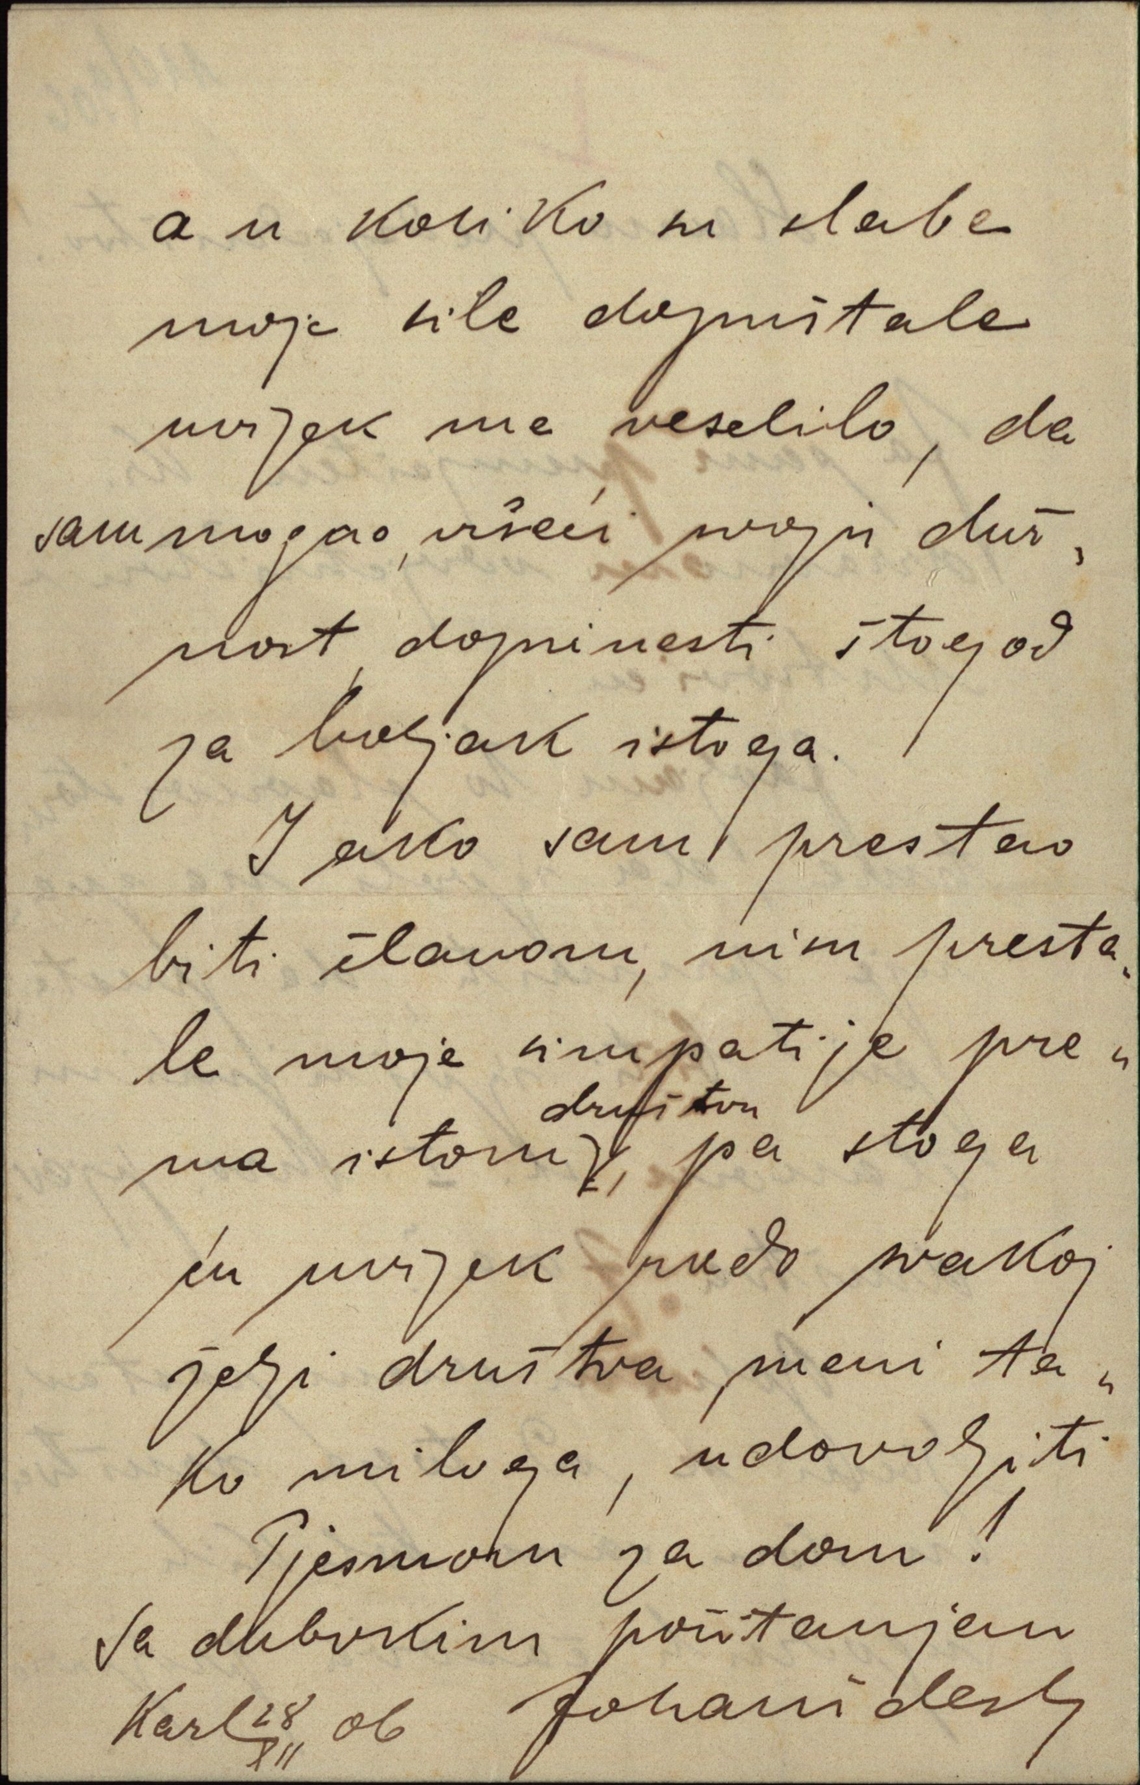 a u koliko su slabe
moje sile dopuštale
uvijek me veselilo, da
sam mogao, vršeći svoju duž„
nost, doprinesti štogod
za boljak istoga.
I ako sam prestao
biti članom, nisu presta„
le moje simpatije pre„
društvu
ma istom, pa stoga
ću uvijek rado svakoj
želji društva, meni ta„
ko miloga, udovoljiti
Pjesmom za dom!
Sa dubokim poštanjem
Karl 28/XII 06